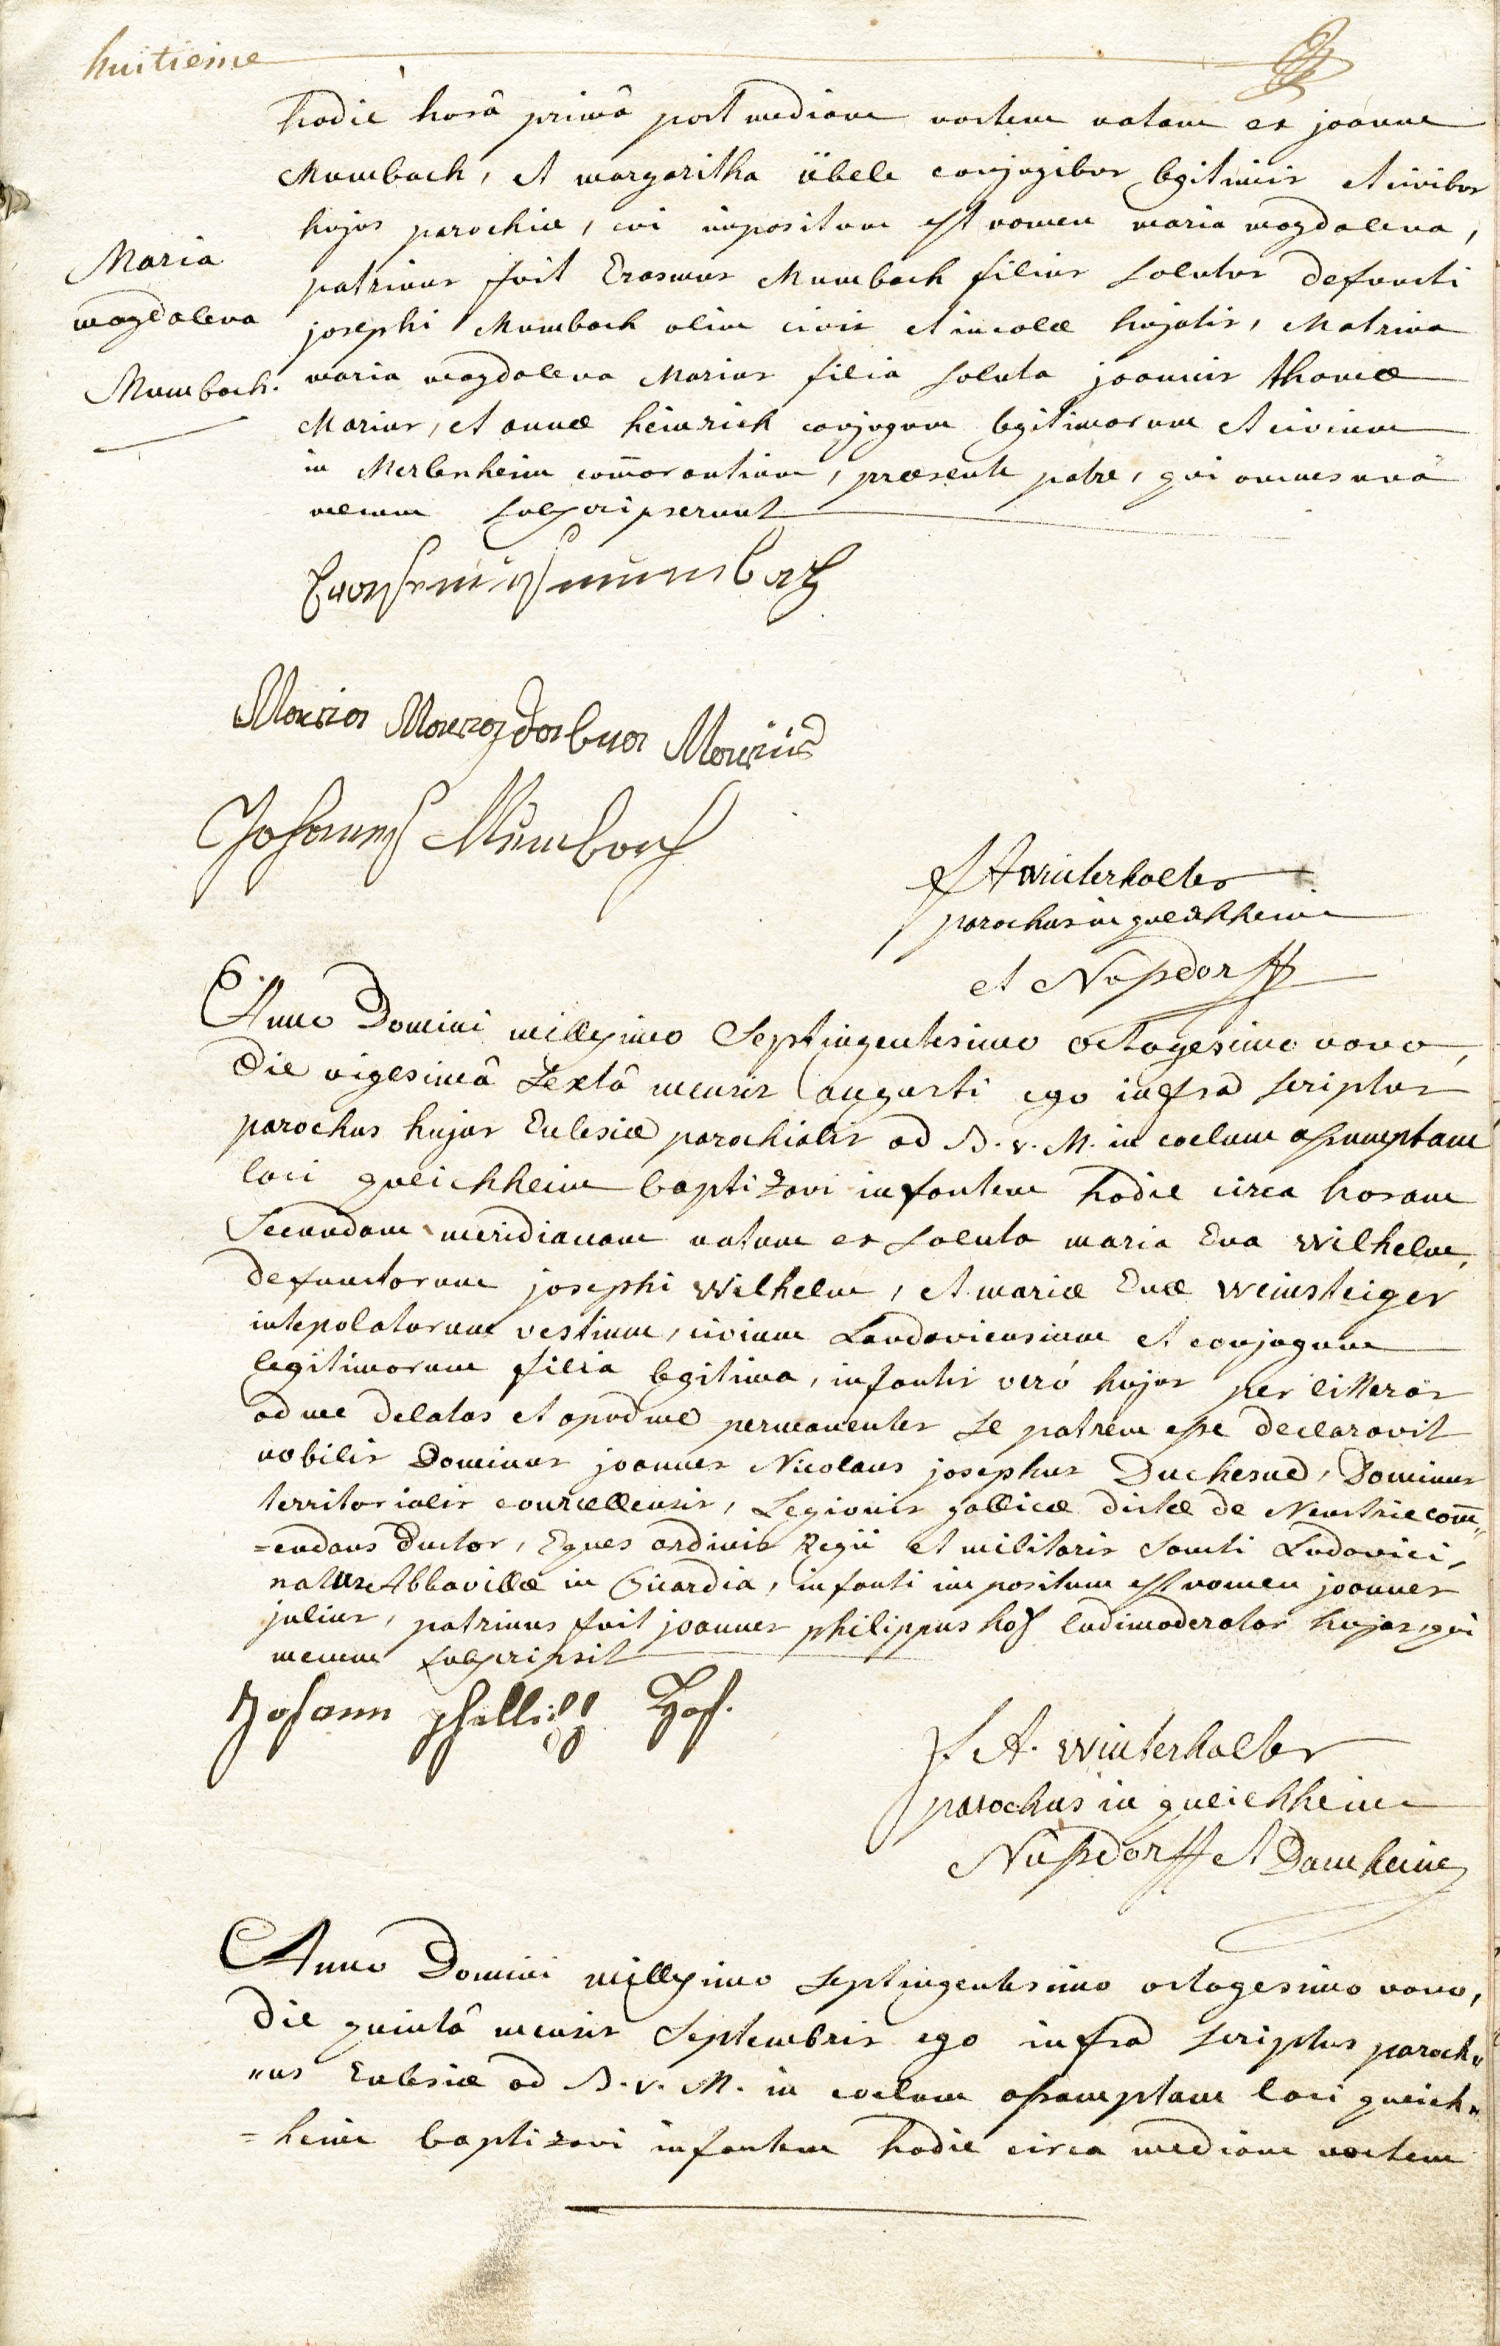 huitieme
hodie horâ primâ post mediam noctem natam ex joanne
Mumbach, et margaritha übele conjugibus legitimis et civibus
hujus parochiæ, cui impositum est nomen maria magdalena,
Maria
magdalena
Mumbach.
patrinus fuit Erasmus Mumbach filius solutus defuncti
josephi Mumbach olim civis et incolæ hujatis, Matrina
maria magdalena Marius filia soluta joannis thomæ
Marius, et annæ heinrich conjugum legitimorum et civium
in Merlenheim com̄orantium, præsente patre, qui omnes unâ
mecum subscripserunt
Erasmus mumbach
Maria Magdalena Marius
Johannes Mumbach
F A winterhalter
parochus in queichheim
et Nußdorff
6.
Anno Domini millesimo Septingentesimo octogesimo nono,
Die vigesimâ Sextâ mensis augusti ego infra scriptus
parochus hujus Eclesiæ parochialis ad B. v. M. in coelum assumptam
loci queichheim baptizavi infantem hodie circa horam
Secundam meridianam natum ex soluta maria Eva wilhelm,
defunctorum josephi wilhelm, et mariæ Evæ weinsteiger
intepolatorum vestium, civium Landaviensium et conjugum
legitimorum filia legitima, infantis verò hujus per litteras
ad me delatas et apud me permanentes se patrem esse declaravit
nobilis Dominus joannes Nicolaus josephus Duchesne, Dominus
territorialis courcellensis, Legionis gallicæ dictæ de Neustrie com̄
=endans ductor, Eques ordinis Regii et militaris sancti Ludovici,
natus Abbavillæ in Picardia, infanti impositum est nomen joannes
julius, patrinus fuit joannes philippus hof ludimoderator hujas, qui
mecum subscripsit
Johann phillipp Hof.
F. A. winterhalter
parochus in queichheim
Nußdorff et Damheim
Anno Domini millesimo septingentesimo octogesimo nono,
Die quintâ mensis Septembris ego infra scriptus paroch„
„us Eclesiæ ad B. v. M. in coelum assumptam loci queich„
=heim baptizavi infantem hodie circa mediam noctem